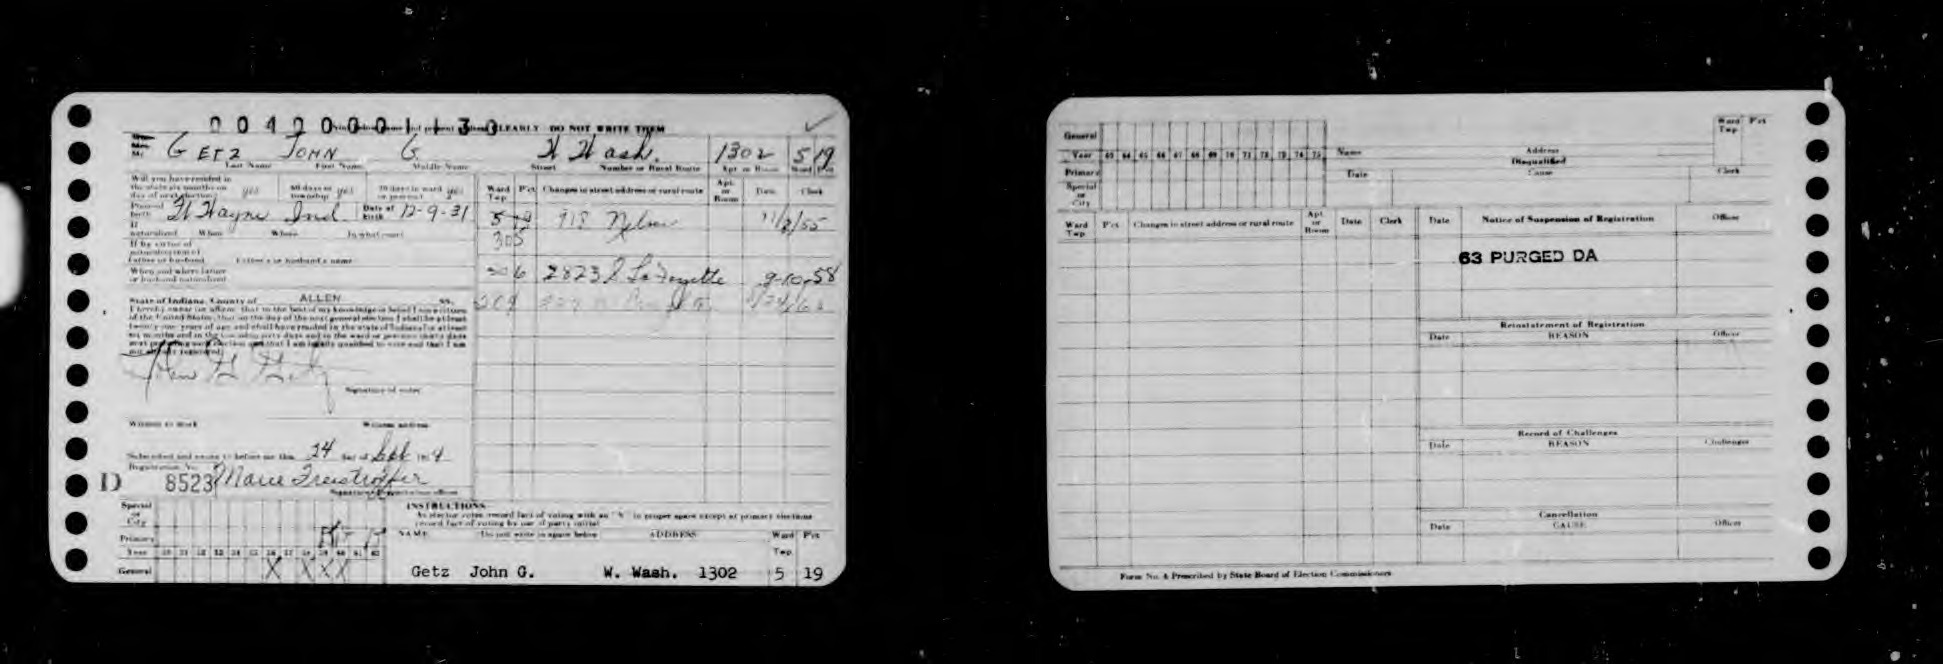 004200001130
CLEARLY DO NOT WRITE THEM
Mr. GETZ JOHN G. W Wash. 1302 5 19
Last Name First Name Middle Name Street Number or Rural Route Apt or Room Ward Pct
Will you have resided in
the state six months on
day of next election yes
60 days in
township yes
30 days in ward
or precinct yes
Place of
birth Ft Wayne Ind. Date of
birth 12-9-31
If
naturalized When Where In what court
If by virtue of
naturalization of
father or husband Father's or husband's name
When and where father
or husband naturalized
State of Indiana, County of ALLEN ss.
I hereby swear (or affirm) that to the best of my knowledge or belief I am a citizen
of the United States; that on the day of the next general election I shall be at least
twenty-one years of age and shall have resided in the state of Indiana for at least
six months and in the township sixty days and in the ward or precinct thirty days
next preceding such election and that I am legally qualified to vote and that I am
not already registered.
John G Getz
Signature of voter
Witness to mark Witness address
Subscribed and sworn to before me this 24 day of Sept 19 4
Registration No.
D 8523 Marie Freistroffer
Signature of registration officer
Ward
Twp Pct Changes in street address or rural route Apt.
or
Room Date Clerk
5 918 Nelson 11/ /55
305
206 2823 S LaFayette 9-10-58
209
Special
or
City
Primary
Year
General X X X X
INSTRUCTIONS
As elector votes record fact of voting with an "X" in proper space except at primary elections
record fact of voting by use of party initial
NAME Do not write in space below ADDRESS Ward
Twp Pct
Getz John G. W. Wash. 1302 5 19
General
Year 63 64 65 66 67 68 69 70 71 72 73 74 75
Primary
Special
or
City
Name Address Ward
Twp Pct
Disqualified
Date Cause Clerk
Ward
Twp Pct Changes in street address or rural route Apt
or
Room Date Clerk
Date Notice of Suspension of Registration Officer
63 PURGED DA
Reinstatement of Registration
Date REASON Officer
Record of Challenges
Date REASON Challenger
Cancellation
Date CAUSE Officer
Form No. 4 Prescribed by State Board of Election Commissioners